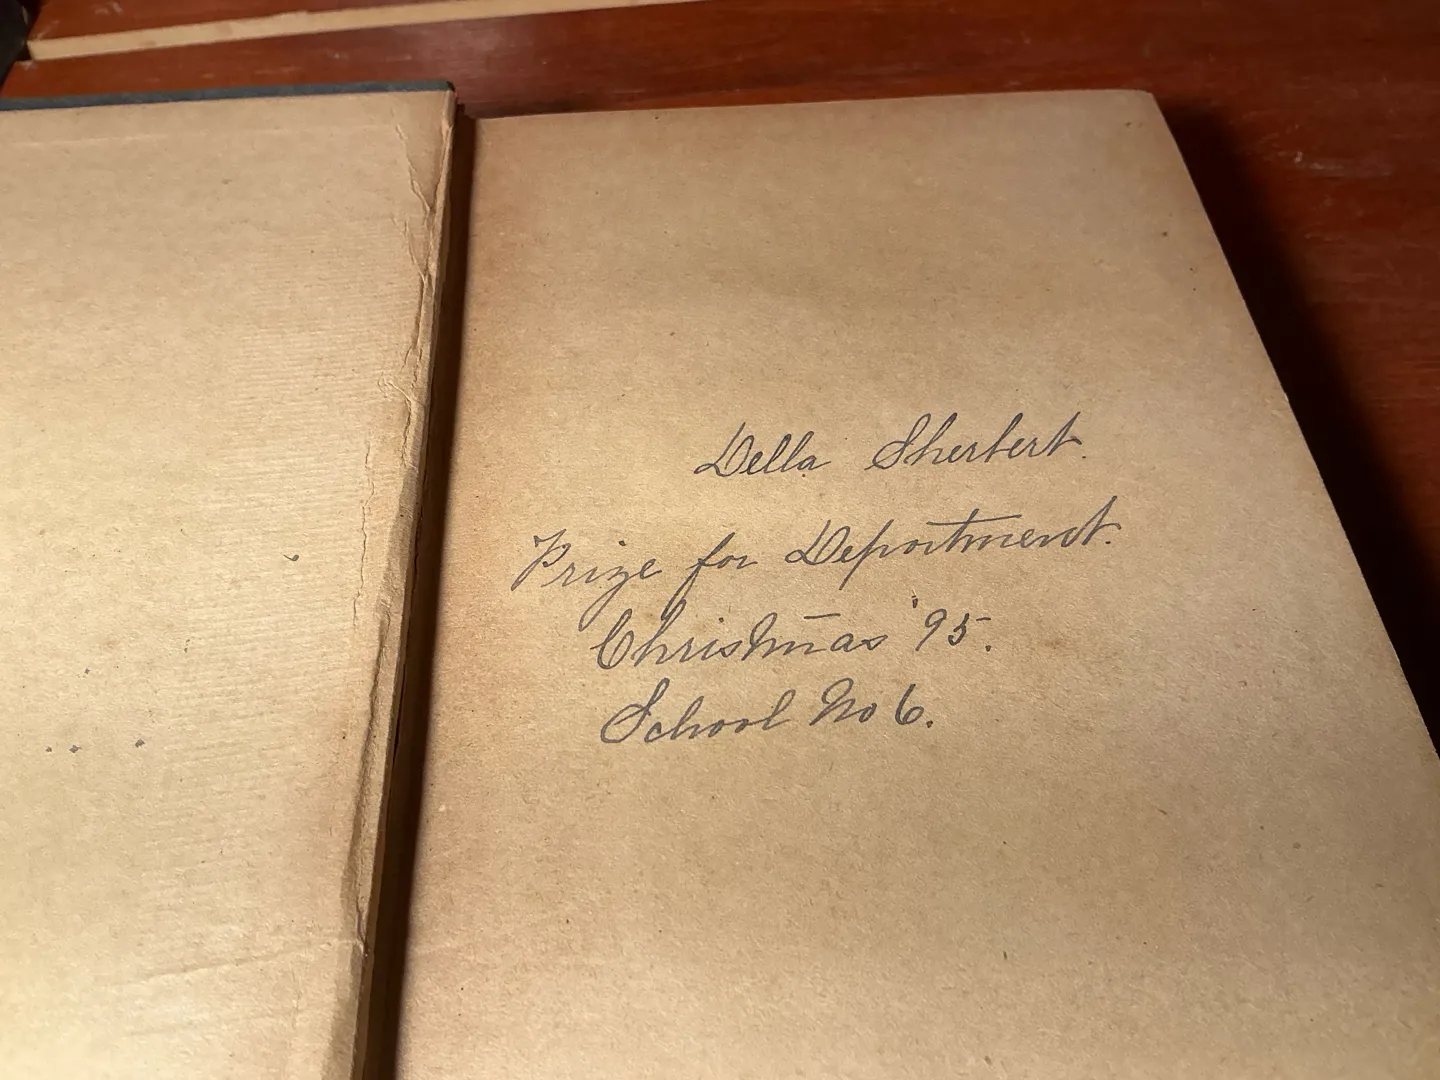 Della Sherbert.
Prize for Deportment.
Christmas '95.
School No 6.